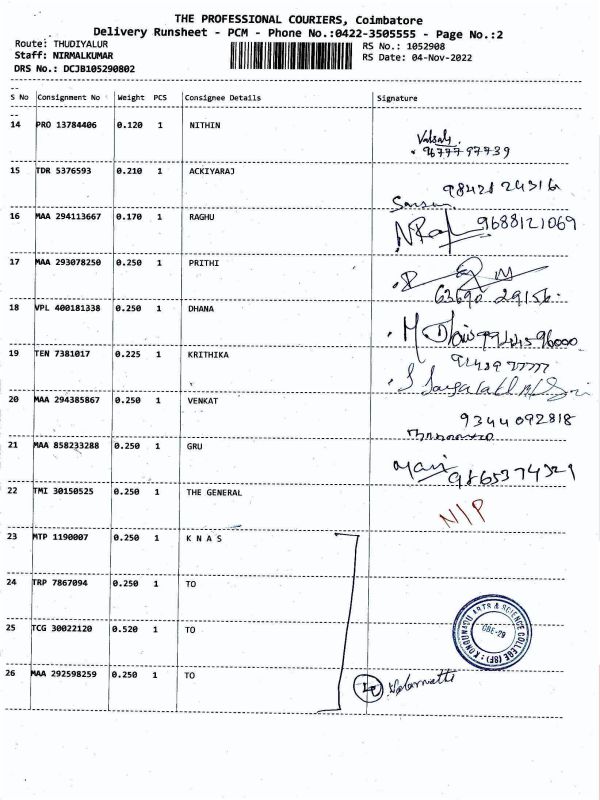 THE PROFESSIONAL COURIERS, Coimbatore
Delivery Runsheet - PCM - Phone No.:0422-3505555 - Page No.:2
Route: THUDIYALUR RS No.: 1052908
Staff: NIRMALKUMAR RS Date: 04-Nov-2022
DRS No.: DCJB105290802
S No Consignment No Weight PCS Consignee Details Signature
14 PRO 13784406 0.120 1 NITHIN
9677797739
15 TDR 5376593 0.210 1 ACKIYARAJ
16 MAA 294113667 0.170 1 RAGHU 9688121069
17 MAA 293078250 0.250 1 PRITHI
63690 29156
18 VPL 400181338 0.250 1 DHANA
19 TEN 7381017 0.225 1 KRITHIKA
20 MAA 294385867 0.250 1 VENKAT
9344092818
21 MAA 858233288 0.250 1 GRU
Mari
22 TMI 30150525 0.250 1 THE GENERAL
N/P
23 MTP 1190007 0.250 1 K N A S
24 TRP 7867094 0.250 1 TO
25 TCG 30022120 0.520 1 TO
KONGUNADU ARTS & SCIENCE COLLEGE (SF)
CBE-29
26 MAA 292598259 0.250 1 TO